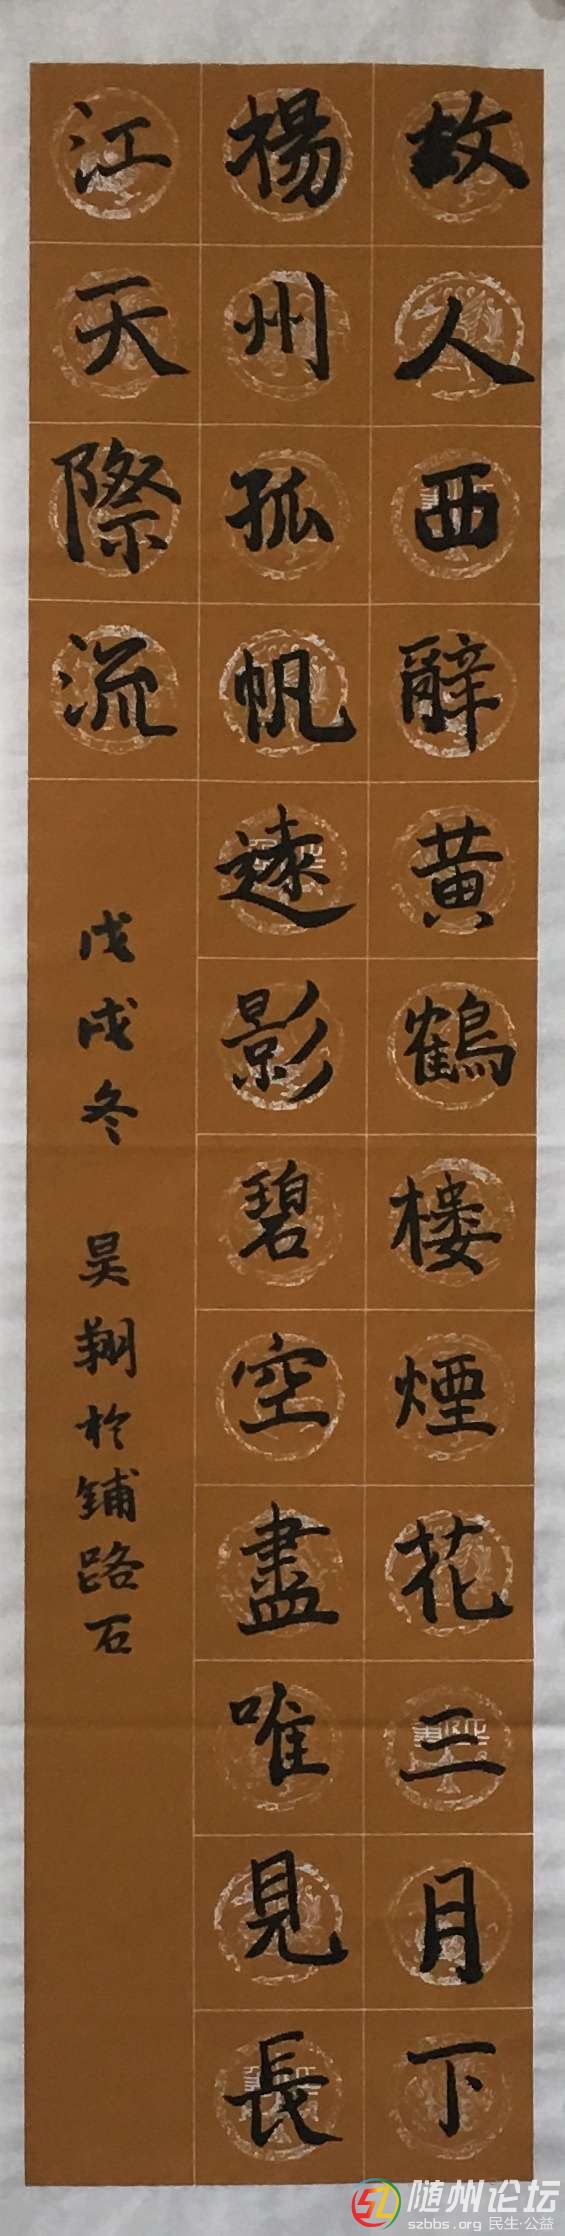 故人西辭黄鶴楼煙花三月下
楊州孤帆遠影碧空盡唯見長
江天際流
戊戌冬 昊翔於鋪路石
随州论坛
szbbs.org 民生·公益